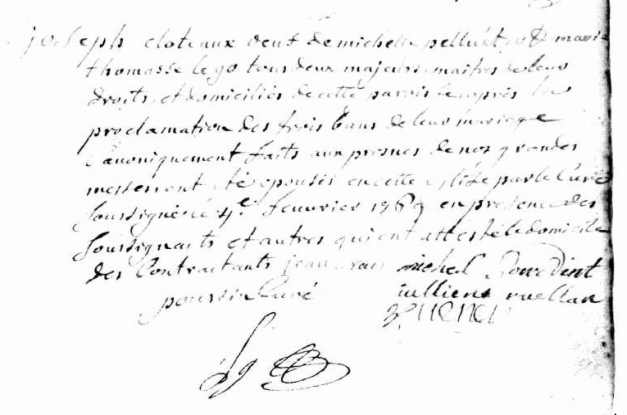 joseph cloteaux veuf de michelle pelluet, et marie
thomasse le go tous deux majeurs maitres de leurs
droits et domiciliés de cette paroisse après les
proclamation des trois bans de leur mariage
canoniquement faits aux prosnes de nos grandes
messes ont été épousés en cette eglise par le curé
soussigné ce 4e. feuvrier 1769 en presence des
soussignants et autres qui ont attesté le domicile
des contractants jean michel
poussin curé jullienne ruellan